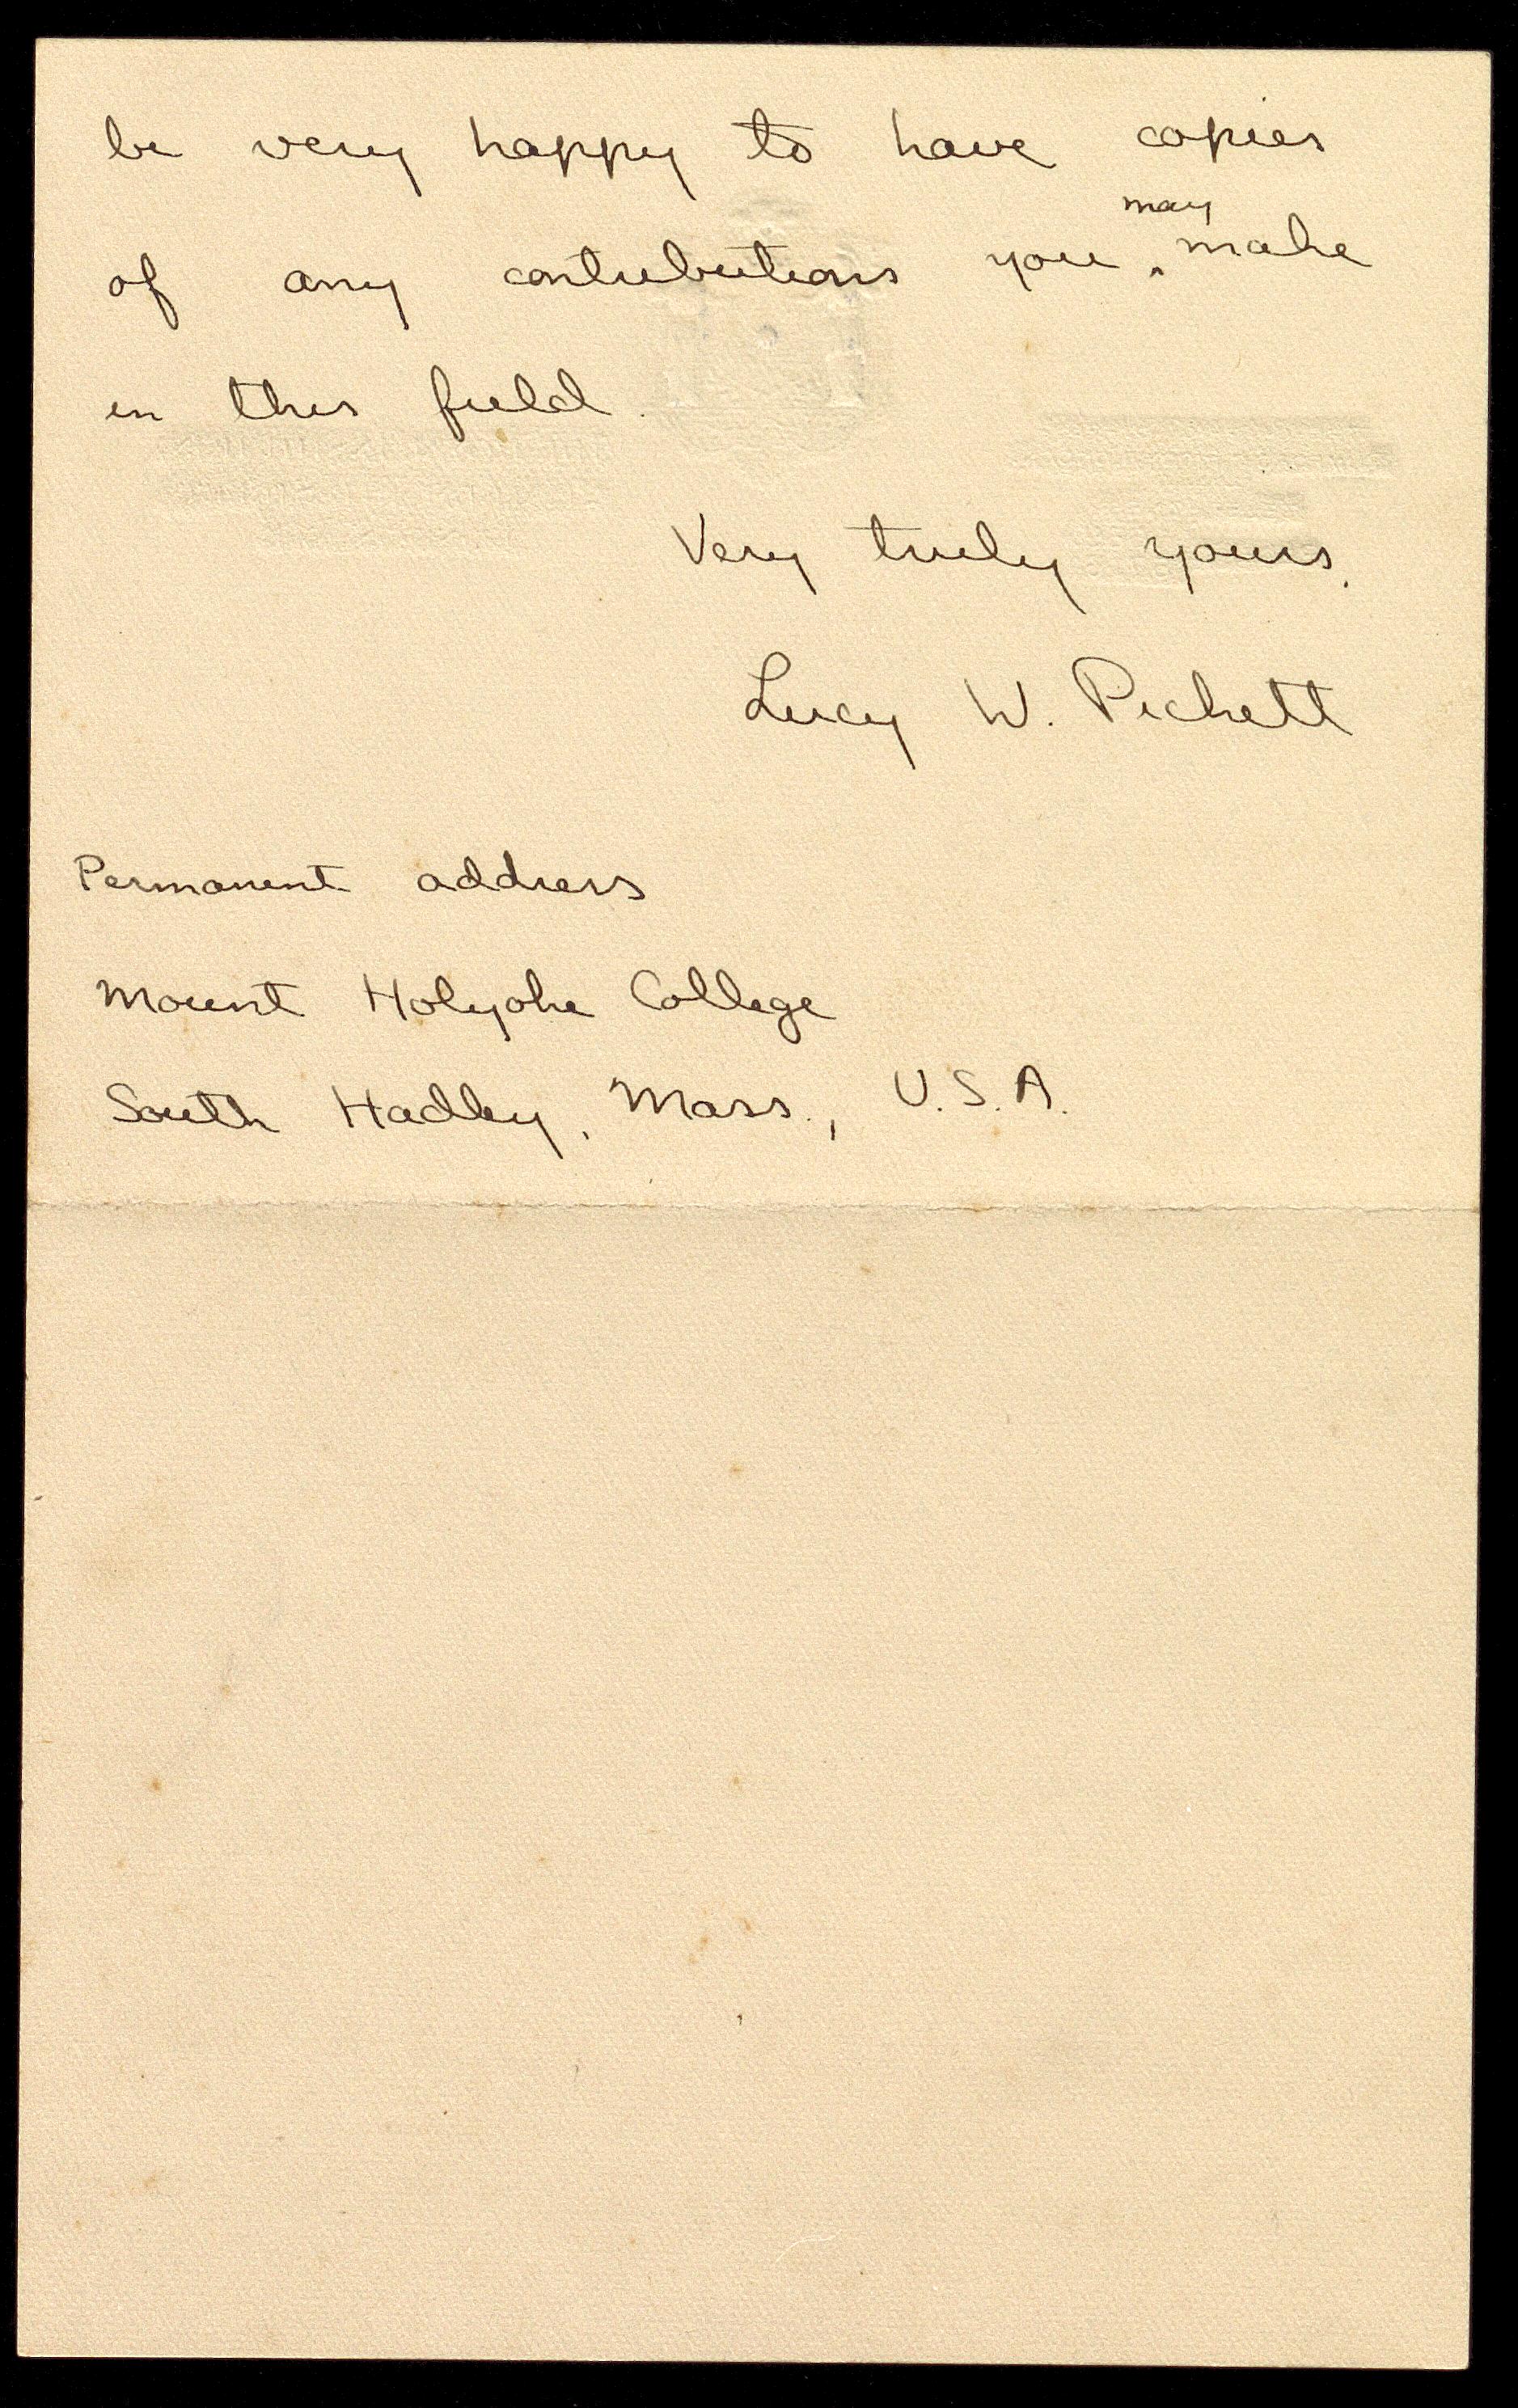 be very happy to have copies
of any contributions you ^may make
in this field.
Very truly yours,
Lucy W. Pickett
Permanent address
Mount Holyoke College
South Hadley, Mass., U.S.A.